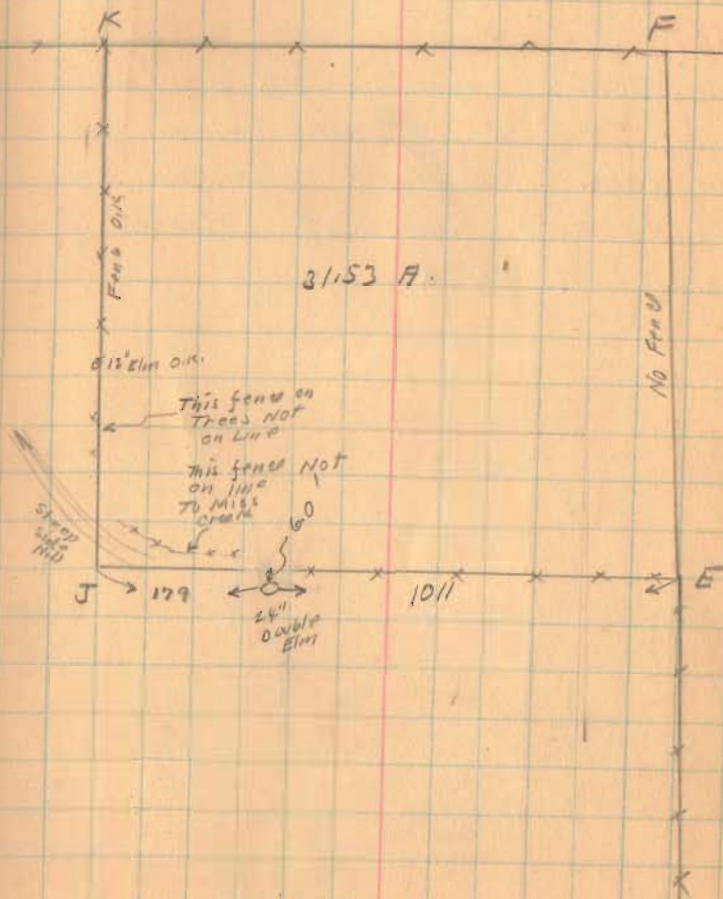 K
F
Fence O.K.
31.53 A.
No Fence
12" Elm O.K.
This fence on
Trees Not
on Line
This fence Not
on line
To Miss
creek
Steep
Side
Hill
60
J
179
1011
E
24"
Double
Elm